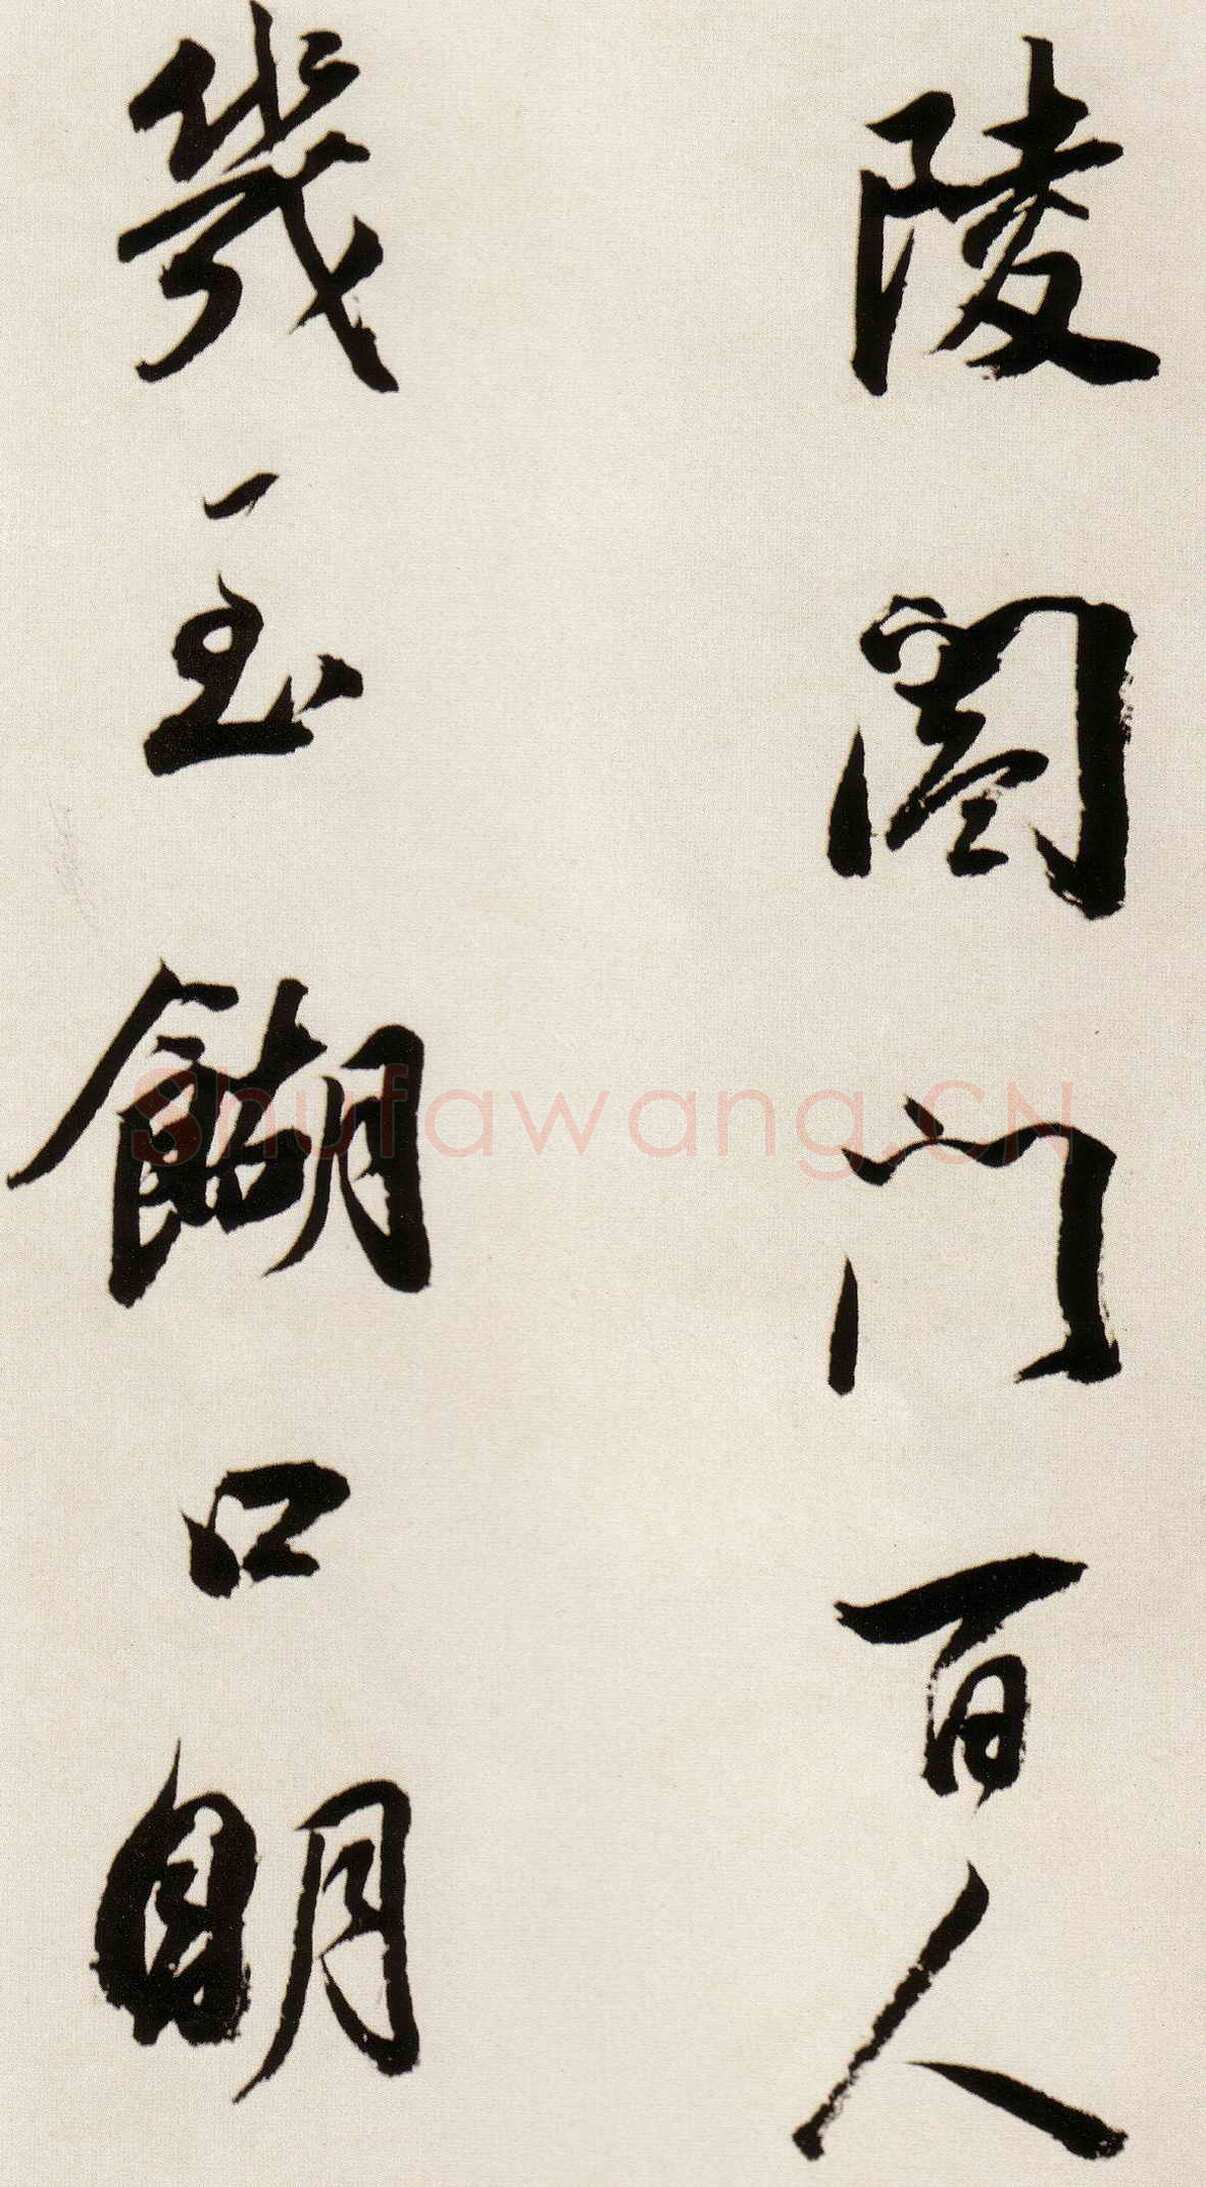 陵阖门百人
几至餬口明
Shufawang.CN